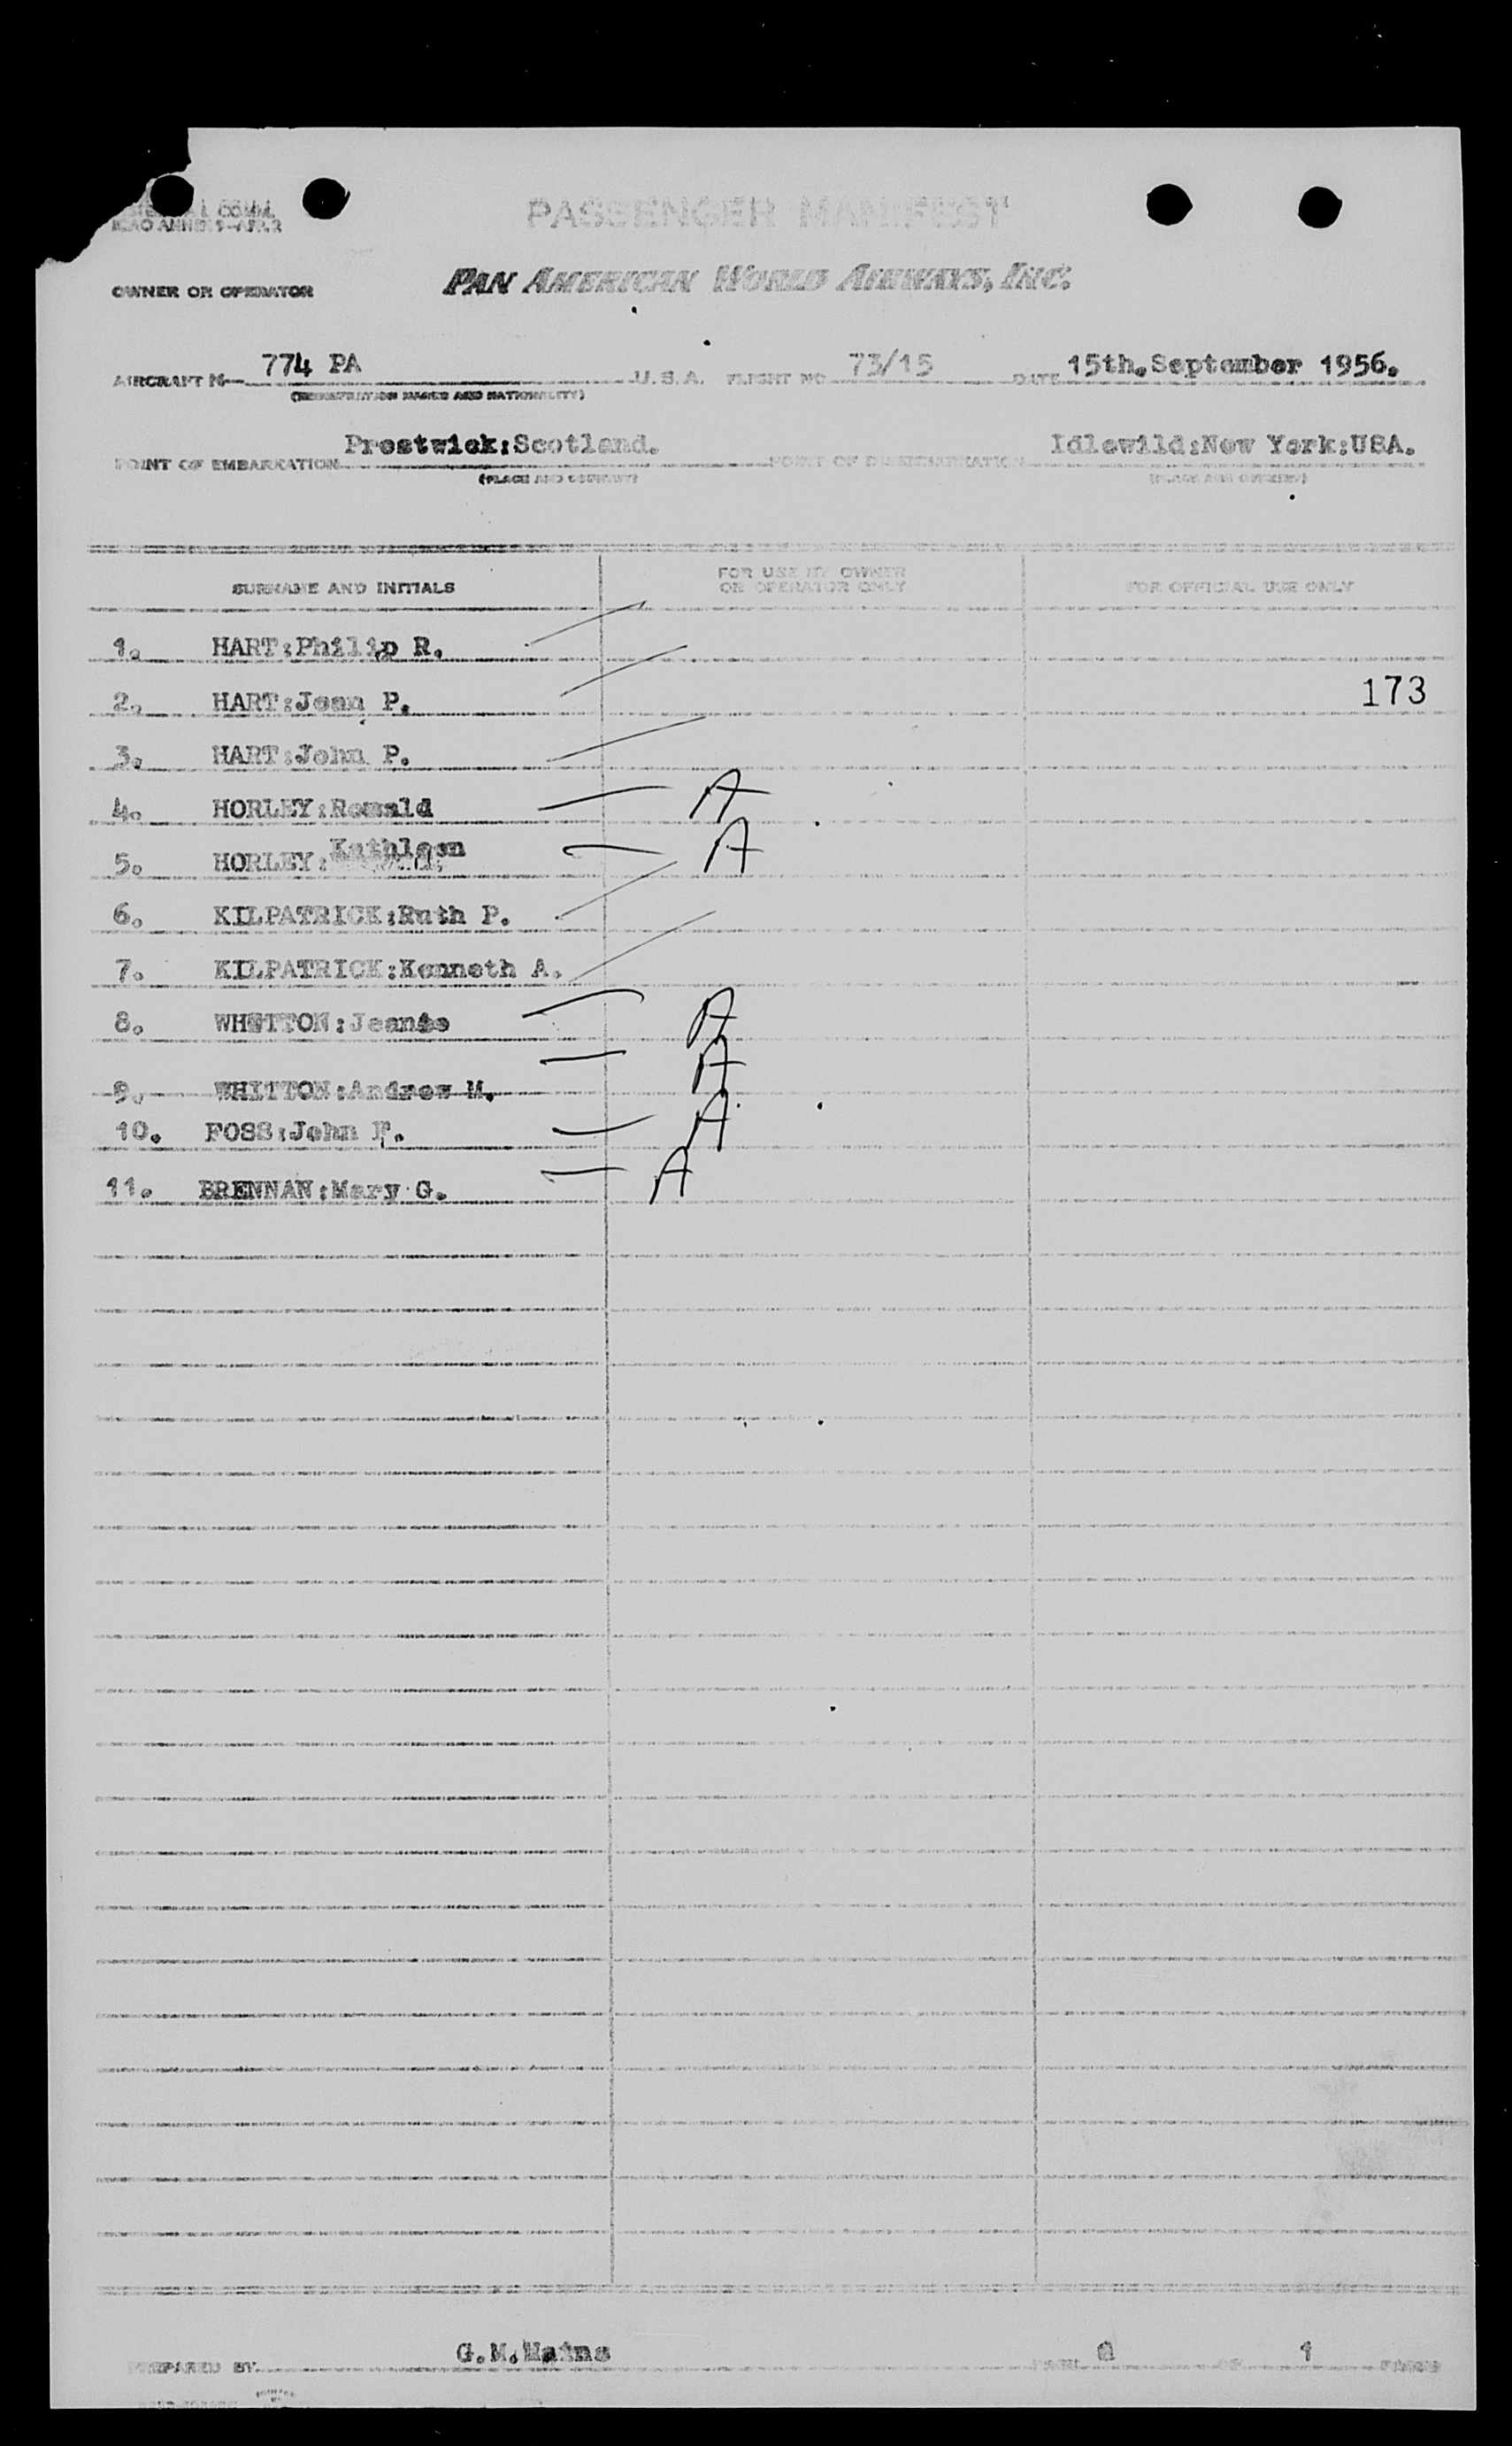 PASSENGER MANIFEST
OWNER OR OPERATOR PAN AMERICAN WORLD AIRWAYS, INC.
AIRCRAFT N— 774 PA U.S.A. FLIGHT NO 73/15 DATE 15th.September 1956.
(REGISTRATION MARKS AND NATIONALITY)
POINT OF EMBARKATION Prestwick:Scotland. POINT OF DISEMBARKATION Idlewild:New York:USA.
(PLACE AND COUNTRY) (PLACE AND COUNTRY)
SURNAME AND INITIALS FOR USE BY OWNER OR OPERATOR ONLY FOR OFFICIAL USE ONLY
1. HART:Philip R.
2. HART:Jean P. 173
3. HART:John P.
4. HORLEY:Ronald A
5. HORLEY: Kathleen A
6. KILPATRICK:Ruth P.
7. KILPATRICK:Kenneth A.
8. WHITTON:Jeanie A
9. WHITTON:Andrew M. A
10. FOSS:John F. A
11. BRENNAN:Mary G. A
PREPARED BY G.M.Mains PAGE OF 1 PAGES